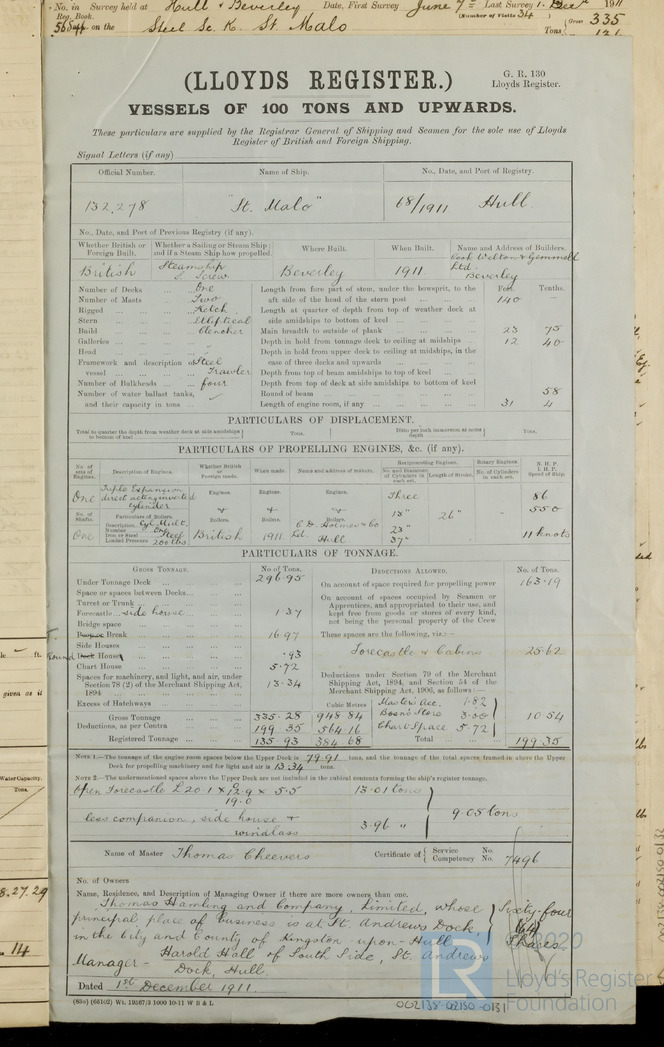 No. in Survey held at Hull & Beverley Date, First Survey June 7th Last Survey 1. Decr 1911
Reg. Book. (Number of Visits 34)
on the Steel Sc. K. St. Malo Tons Gross 335
121
(LLOYDS REGISTER.)
G. R. 130
Lloyds Register.
VESSELS OF 100 TONS AND UPWARDS.
These particulars are supplied by the Registrar General of Shipping and Seamen for the sole use of Lloyds
Register of British and Foreign Shipping.
Signal Letters (if any)
Official Number. Name of Ship. No., Date, and Port of Registry.
132,278 "St. Malo" 68/1911 Hull.
No., Date, and Port of Previous Registry (if any).
Whether British or Foreign Built. Whether a Sailing or Steam Ship; and if a Steam Ship how propelled. Where Built. When Built. Name and Address of Builders.
British Steamship S. Screw Beverley 1911 Cook Welton & Gemmell Ltd. Beverley
Number of Decks ... One
Number of Masts ... Two
Rigged ... Ketch
Stern ... Elliptical
Build ... Clencher
Galleries ...
Head ...
Framework and description of vessel ... Steel Trawler
Number of Bulkheads ... four
Number of water ballast tanks, and their capacity in tons ...
Feet. Tenths.
Length from fore part of stem, under the bowsprit, to the aft side of the head of the stern post ... 140 —
Length at quarter of depth from top of weather deck at side amidships to bottom of keel ...
Main breadth to outside of plank ... 23 75
Depth in hold from tonnage deck to ceiling at midships ... 12 40
Depth in hold from upper deck to ceiling at midships, in the case of three decks and upwards ...
Depth from top of beam amidships to top of keel ...
Depth from top of deck at side amidships to bottom of keel
Round of beam ... 58
Length of engine room, if any ... 31 4
PARTICULARS OF DISPLACEMENT.
Total to quarter the depth from weather deck at side amidships to bottom of keel Tons. Ditto per inch immersion at same depth Tons.
PARTICULARS OF PROPELLING ENGINES, &c. (if any).
No. of sets of Engines. Description of Engines. Whether British or Foreign made. When made. Name and address of makers. Reciprocating Engines. No. and Diameter of Cylinders in each set. Length of Stroke. Rotary Engines. No. of Cylinders in each set. N. H. P. I. H. P. Speed of Ship.
One Triple Expansion direct acting inverted cylinder Engines. Engines. Engines. Three 86
No. of Shafts. Particulars of Boilers. Boilers. Boilers. Boilers. 13" 26" " 550
One Description Cyl. Mult. British 1911 C. D. Holmes & Co 23"
Number One Ltd. Hull 37" 11 knots
Iron or Steel Steel
Loaded Pressure 200 lbs
PARTICULARS OF TONNAGE.
GROSS TONNAGE. No of Tons. DEDUCTIONS ALLOWED. No. of Tons.
Under Tonnage Deck ... 296.95
Space or spaces between Decks...
Turret or Trunk ...
Forecastle... side house ... 1.37
Bridge space ...
Poop or Break ... 16.97
Side Houses ...
Round Deck Houses ... .93
Chart House ... 5.72
Spaces for machinery, and light, and air, under Section 78 (2) of the Merchant Shipping Act, 1894 ... 13.34
Excess of Hatchways Cubic Metres
Gross Tonnage ... 335.28 948.84
Deductions, as per Contra ... 199.35 564.16
Registered Tonnage ... 135.93 384.68
On account of space required for propelling power 163.19
On account of spaces occupied by Seamen or Apprentices, and appropriated to their use, and kept free from goods or stores of every kind, not being the personal property of the Crew
These spaces are the following, viz:—
Forecastle & Cabins 25.62
Deductions under Section 79 of the Merchant Shipping Act, 1894, and Section 54 of the Merchant Shipping Act, 1906, as follows:—
Master's Acc. 1.82
Bosn's Store 3.00 10.54
Chart Space 5.72
Total ... 199.35
NOTE 1.—The tonnage of the engine room spaces below the Upper Deck is 79.91 tons, and the tonnage of the total spaces framed in above the Upper Deck for propelling machinery and for light and air is 13.34 tons.
NOTE 2.—The undermentioned spaces above the Upper Deck are not included in the cubical contents forming the ship's register tonnage.
Open Forecastle 13.01 tons
less companion, side house & windlass 3.96 " 9.05 tons
Name of Master Thomas Cheevers Certificate of Service No. Competency No. 7496
No. of Owners
Name, Residence, and Description of Managing Owner if there are more owners than one.
Thomas Hamling and Company, Limited, whose Sixty-four
principal place of business is at St. Andrews Dock, 64
in the City and County of Kingston-upon-Hull Shares
Manager - Harold Hall of South Side, St. Andrews
Dock, Hull.
Dated 1st December 1911.
(85o) (66102) Wt. 19567/3 1000 10-11 W B & L
002138-02150-0131
© 2020
LR
Lloyd's Register
Foundation
given as it
Water Capacity.
Tons.
8.27.29
114